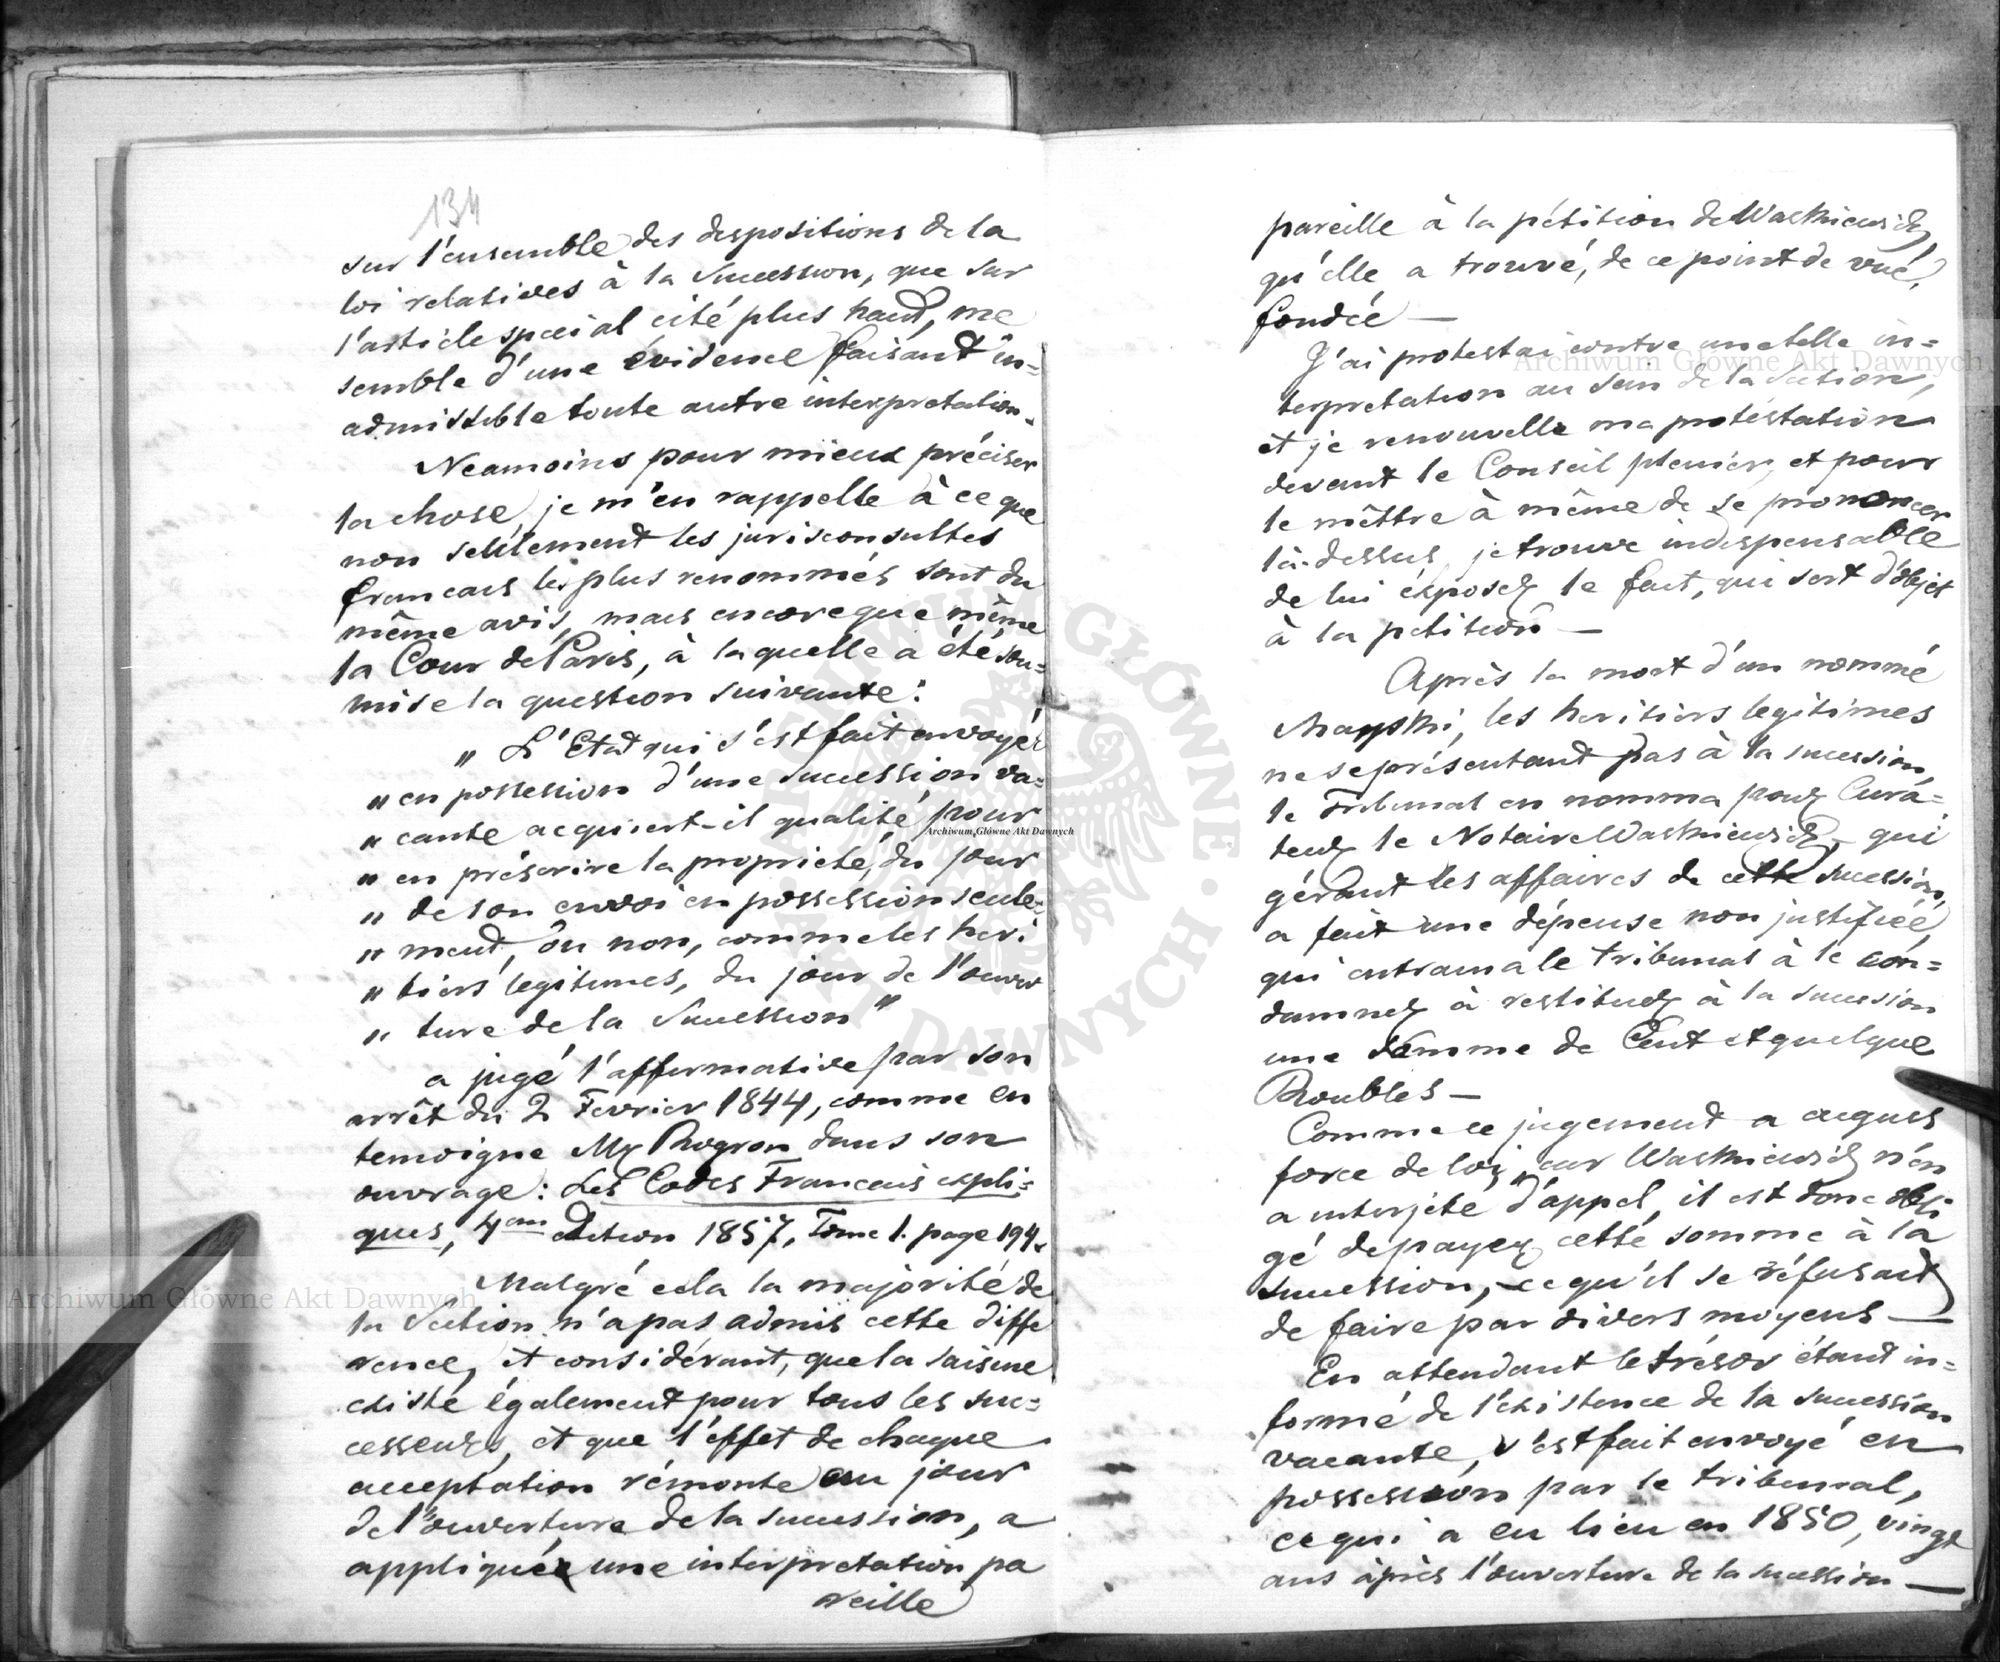 134
sur l'ensemble des despositions de la
loi relatives à la Sucession, que sur
l'article special cité plus haut, me
semble d'une évidence faisant in=
admissible toute autre interpretation.
Neamoins pour mieux préciser
la chose, je m'en rappelle à ce que
non seulement les jurisconsultes
francais les plus renommés sont du
même avis, mais encore que même
la Cour de Paris, à laquelle a été sou=
mise la question suivante:
„ L'Etat qui s'est fait envoyer
„ en possession d'une sucession va=
„ cante acquiert-il qualité pour
„ en préscrire la propriété, du jour
„ de son envoi en possession seule=
„ ment, ou non, comme les heri
„ tiers legitimes, du jour de l'ouver
„ ture de la Sucession"
a jugé l'affermative par son
arrêt du 2 Fevrier 1844, comme en
temoigne Mr Rogron dans son
ouvrage: Les Codes Francais expli=
ques, 4em Edition 1857, Tome 1. page 194.
Malgré cela la majorité de
la Section n'a pas admis cette diffe
rence, et considérant, que la saisine
existe également pour tous les suc=
cesseurs, et que l'effet de chaque
acceptation rémonte au jour
de l'ouverture de la sucession, a
appliquée une interpretation pa
reille
pareille à la pétition de Waskiewicz
qu'elle a trouvé, de ce point de vue,
fondée —
J'ai protestai contre une telle in=
terpretation au sein de la Section,
et je renouvelle ma protéstation
devant le Conseil plenier, et pour
le mêttre à même de se prononcer
là-dessus, je trouve indespensable
de lui éxposer le fait, qui sert d'objet
à la petition —
Après la mort d'un nommé
les heritiers legitimes
ne se présentant pas à la sucession,
le Tribunal en nomma pour Cura=
teur le Notaire Waskiewicz, qui
gérant les affaires de cette sucession,
a fait une dépense non justifiée,
qui entraina le tribunal à le con=
damner à restituer à la sucession
une somme de Cent et quelque
Roubles —
Comme ce jugement a acquis
force de loi, car Waskiewicz n'en
a interjeté d'appel, il est donc obli
gé de payer cette somme à la
sucession, ce qu'il se réfusait
de faire par divers moyens —
En attendant le trésor étant in=
formé de l'existence de la sucession
vacante, s'est fait envoyé en
possession par le tribunal,
ce qui a eu lieu en 1850, vingt
ans après l'ouverture de la sucession —
Archiwum Główne Akt Dawnych
Archiwum Główne Akt Dawnych
Archiwum Główne Akt Dawnych
ARCHIWUM GŁÓWNE AKT DAWNYCH